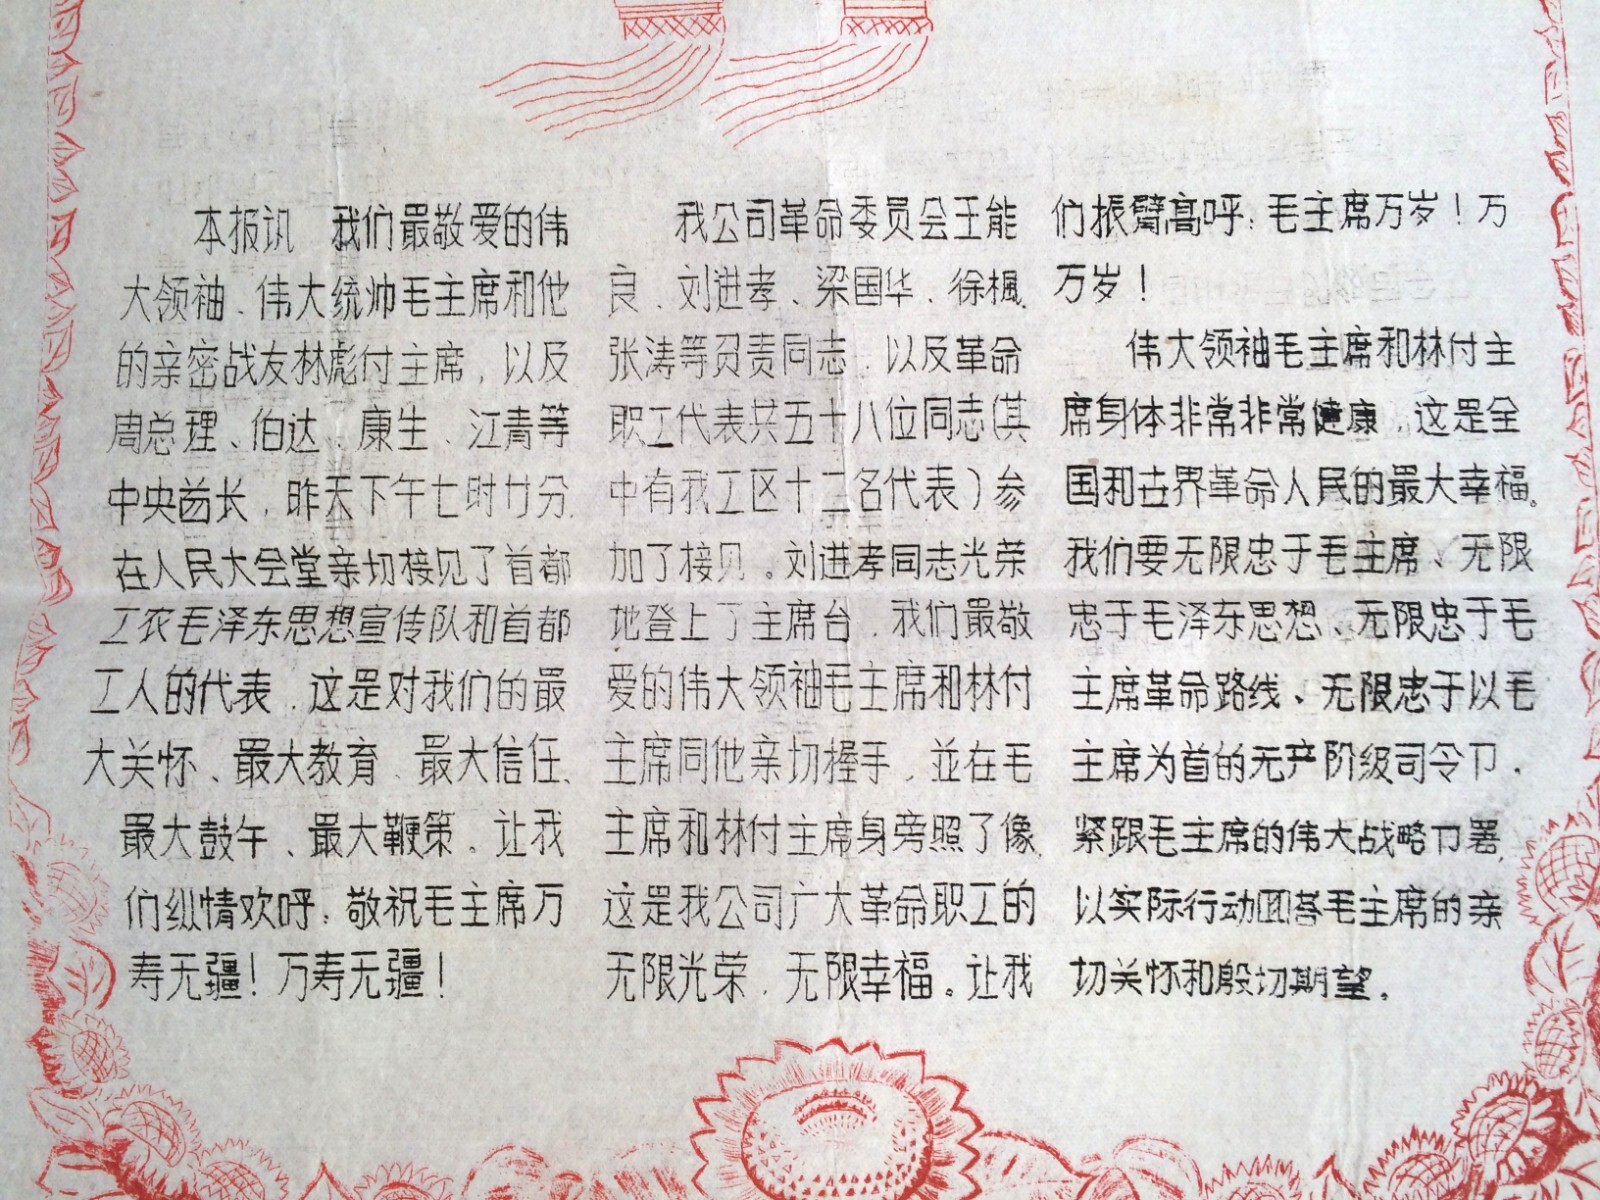 本报讯 我们最敬爱的伟
大领袖、伟大统帅毛主席和他
的亲密战友林彪付主席，以及
周总理、伯达、康生、江青等
中央首长，昨天下午七时廿分，
在人民大会堂亲切接见了首都
工农毛泽东思想宣传队和首都
工人的代表，这是对我们的最
大关怀、最大教育、最大信任、
最大鼓午、最大鞭策。让我
们纵情欢呼：敬祝毛主席万
寿无疆！万寿无疆！
我公司革命委员会王能
良、刘进孝、梁国华、徐楓、
张涛等负责同志，以及革命
职工代表共五十八位同志（其
中有我工区十二名代表）参
加了接见。刘进孝同志光荣
地登上了主席台，我们最敬
爱的伟大领袖毛主席和林付
主席同他亲切握手，並在毛
主席和林付主席身旁照了像，
这是我公司广大革命职工的
无限光荣，无限幸福。让我
们振臂高呼：毛主席万岁！万
万岁！
伟大领袖毛主席和林付主
席身体非常非常健康，这是全
国和世界革命人民的最大幸福。
我们要无限忠于毛主席、无限
忠于毛泽东思想、无限忠于毛
主席革命路线、无限忠于以毛
主席为首的无产阶级司令卩，
紧跟毛主席的伟大战略卩署，
以实际行动回答毛主席的亲
切关怀和殷切期望。